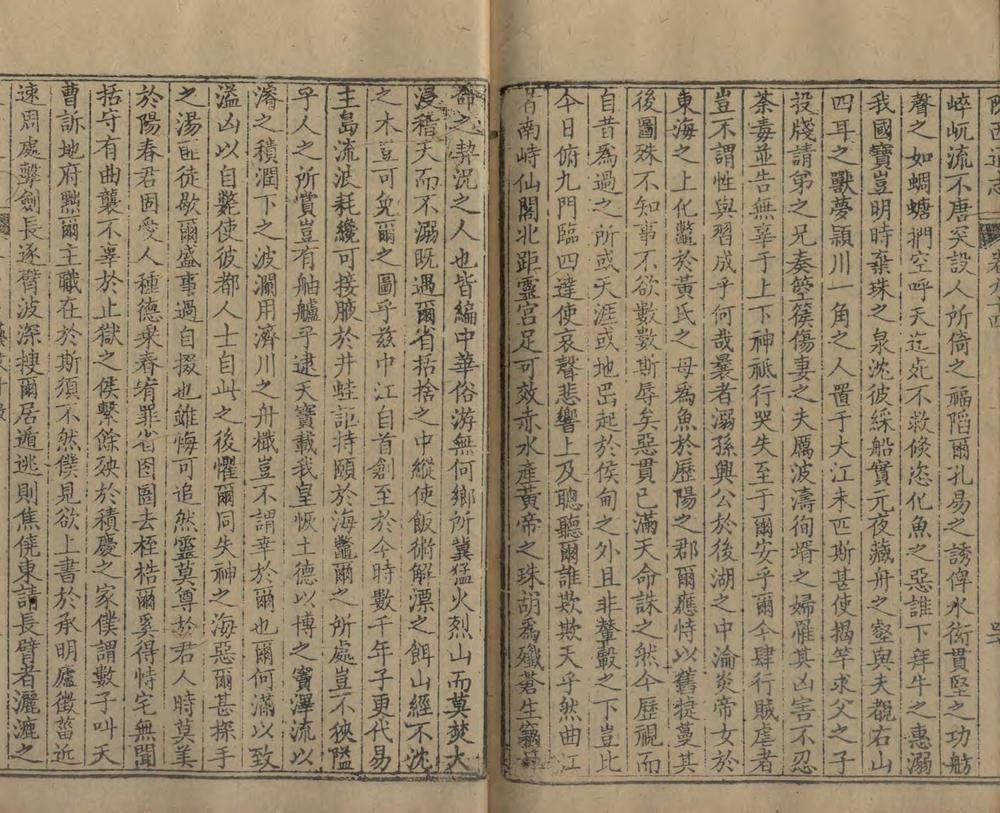 陝西通志 卷九十四
崪岏流不唐突設人所倚之福蹈爾孔易之誘俾水銜貫堅之功舫
聲之如蜩螗捫空呼天迄死不救倐恣化魚之惡誰下拜牛之惠溺
我國寶豈明時棄珠之泉沈彼綵船實元夜藏舟之壑與夫覩右山
四耳之獸夢潁川一角之人置于大江未匹斯甚使揭竿求父之子
投牋請弟之兄奏箜篌傷妻之夫厲波濤徇壻之婦罹其凶害不忍
荼毒並告無辜于上下神祇行哭失至于爾安乎爾今肆行賊虐者
豈不謂性與習成乎何哉曩者溺孫興公於後湖之中淪炎帝女於
東海之上化鼈於黃氏之母爲魚於歷陽之郡爾應恃以舊捷蔓其
後圖殊不知事不欲數數斯辱矣惡貫已滿天命誅之然今歷視而
自昔爲過之所或天涯或地出起於侯甸之外且非輦轂之下豈比
今日俯九門臨四達使哀聲悲響上及聰聽爾誰欺欺天乎然曲江
者南峙仙閣北距靈宮足可效赤水產黃帝之珠胡爲殲蒼生
命之契況之人也皆編中華俗游無何鄉所冀猛火烈山而莫焚大
浸稽天而不溺既遇爾省括捨之中縱使飯術解漂之餌山經不沈
之木豈可免爾之圖乎茲巾江自首創至於今時數千年子更代易
主島流浪耗纔可接腋於井蛙詎持頤於海鼈爾之所處豈不狹隘
乎人之所賞豈有舳艫乎逮天寶載我皇恢土德以博之寶澤流以
濬之積潤下之波瀾用濟川之舟檝豈不謂幸於爾也爾何滿以致
溢凶以自斃使彼都人士自此之後懼爾同失神之海惡爾甚探手
之湯匪徒歇爾盛事過自掇也雖悔可追然靈莫尊於君人時莫美
於陽春君固受人種德乘春宥罪省囹圄去桎梏爾奚得恃宅無聞
括守有曲襲不辜於止獄之侯繫餘殃於積慶之家僕謂數子叫天
曹訴地府黜爾主職在於斯須不然僕見欲上書於承明廬徵菑近
速周處擊劍長逐臂波深搜爾居遁逃則焦僥東請長臂者灑漉之